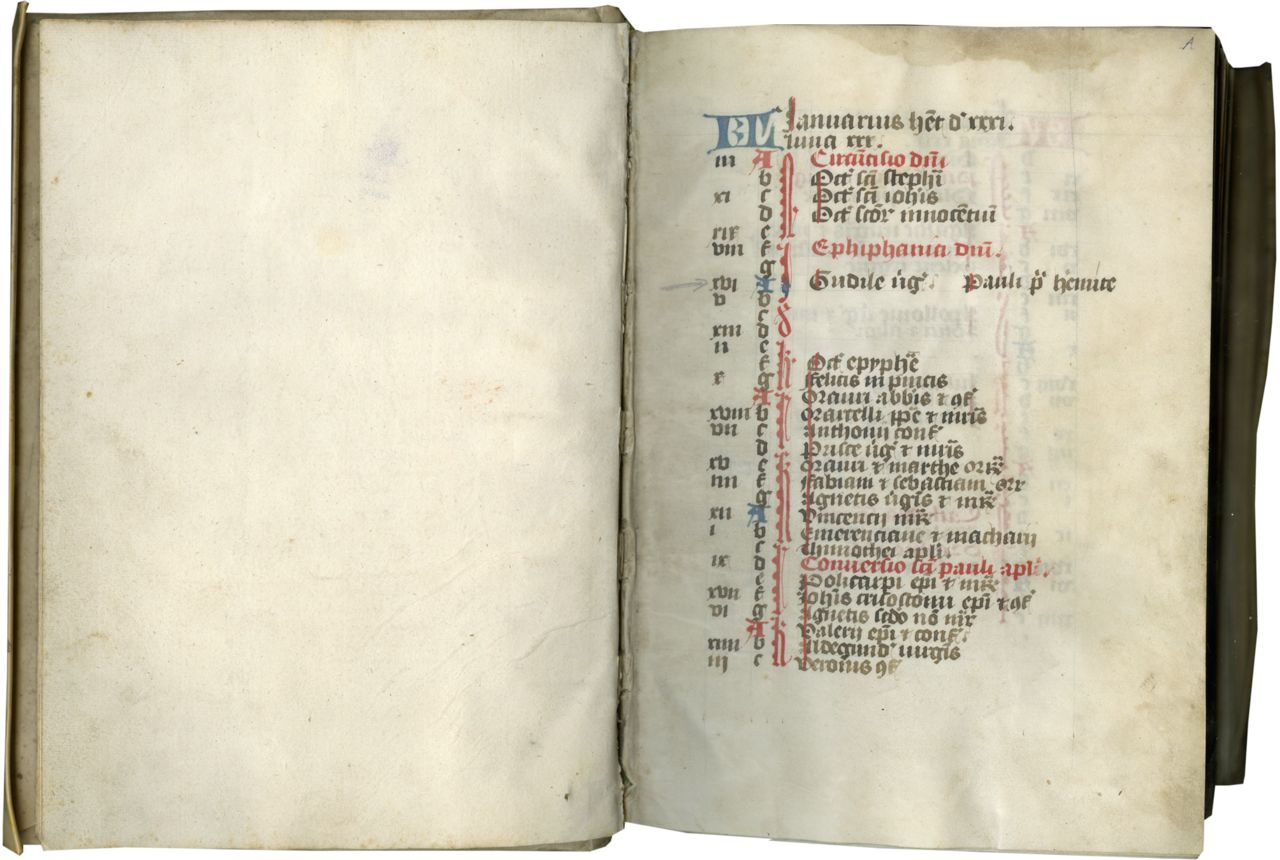 A
KL Januarius hēt d' xxxi.
luna xxx.
iii A Circūcisio dn̄i
b Oct' sc̄i stephī
xi c Oct' sc̄i ioh̄is
d Oct' sc̄or innocētuū
xix e
viii f Ephiphania dn̄i.
g
xvi A Gudile v̄g'. Pauli p̄' h̄emite
v b
c
xiii d
ii e
f Oct' epyphē
x g Felicis in pincis
A Mauri abb̄is t 9f'
xviii b Marcelli pp̄e t mr̄is
vii c Anthonii conf'
d Prisce v̄g' t mr̄is
xv e Marii t marthe mr̄
iiii f Fabiani t sebastiani mr̄
g Agnetis v̄gīs t mr̄
xii A Vincencij mr̄
i b Emerenciane t macharij
c Thimothei apl̄i.
ix d Conuersio sc̄i pauli apl̄i.
e Policarpi ep̄i t mr̄
xvii f Joh̄is crisostomi ep̄i t 9f'
vi g Agnetis sc̄do
A Valerij ep̄i t conf'.
xiiii b Aldegund' uirgīs
iii c 9f'